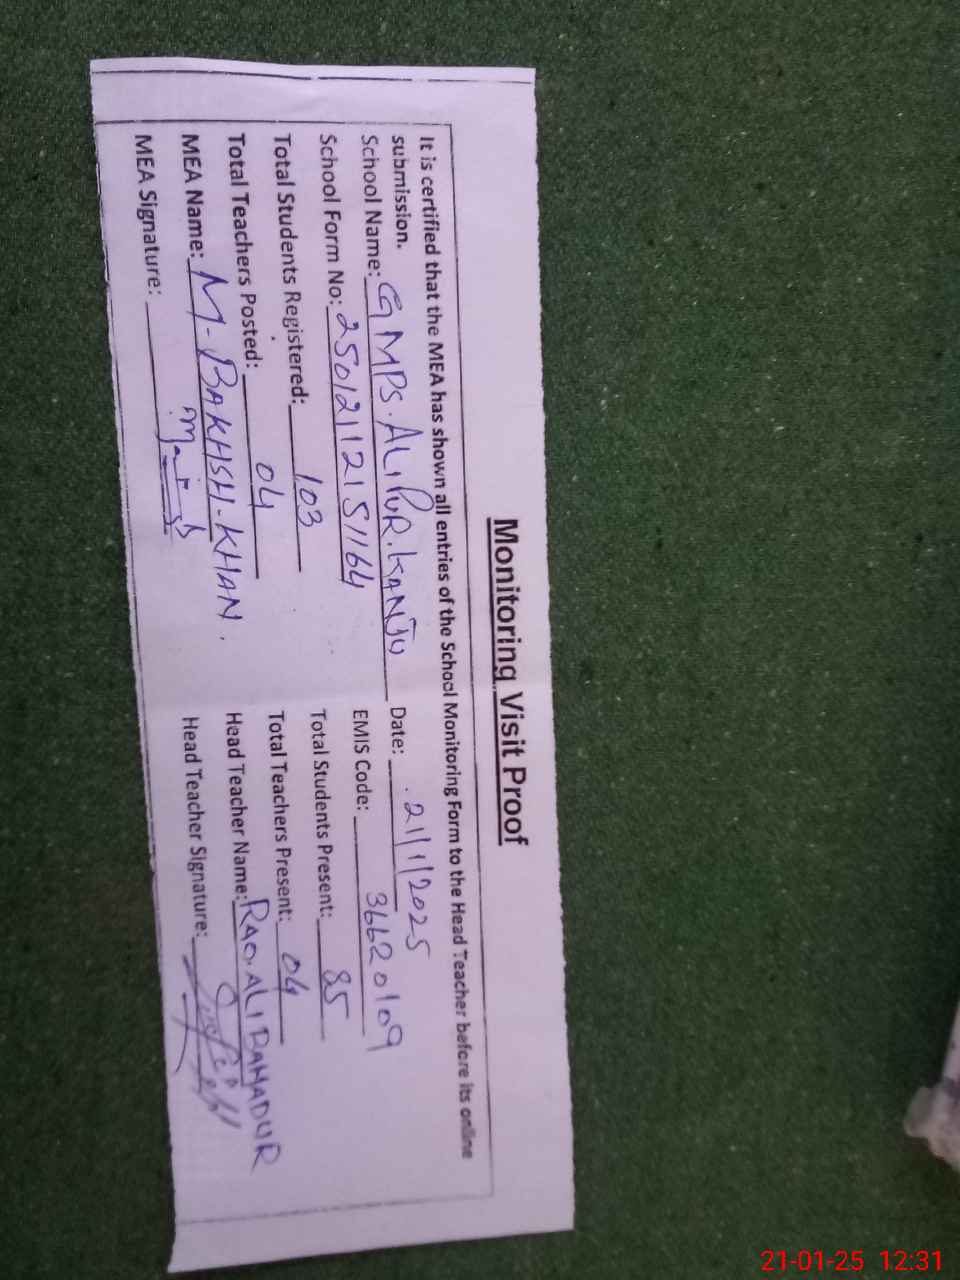 Monitoring Visit Proof
It is certified that the MEA has shown all entries of the School Monitoring Form to the Head Teacher before its online
submission.
School Name: GMPS. ALI PUR. KANJU Date: 21/1/2025
School Form No: 25012112151164 EMIS Code: 36620109
Total Students Registered: 103 Total Students Present: 85
Total Teachers Posted: 04 Total Teachers Present: 04
MEA Name: M. BAKHSH. KHAN. Head Teacher Name: RAO. ALI BAHADUR
MEA Signature: Head Teacher Signature:
21-01-25 12:31